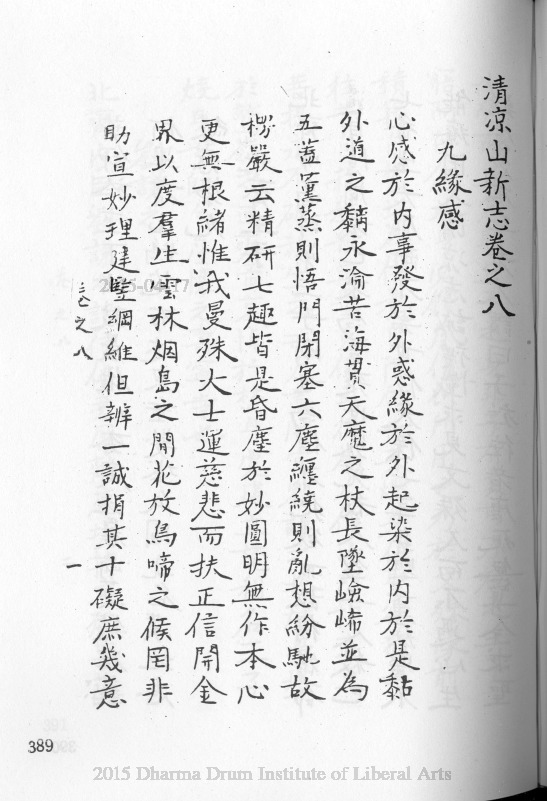 清凉山新志卷之八
九緣感
心感於内事發於外惑緣於外起染於内於是黏
外道之黐永淪苦海貫天魔之杖長墜嶮崎並為
五蓋薰蒸則悟門閉塞六塵纏繞則亂想紛馳故
楞嚴云精研七趣皆是昏塵於妙圓明無作本心
更無根緒惟我曼殊大士運慈悲而扶正信開金
界以度羣生雲林烟島之間花放鳥啼之候罔非
助宣妙理建豎綱維但辦一誠捐其十礙庶幾意
志之八
一
389
2015 Dharma Drum Institute of Liberal Arts